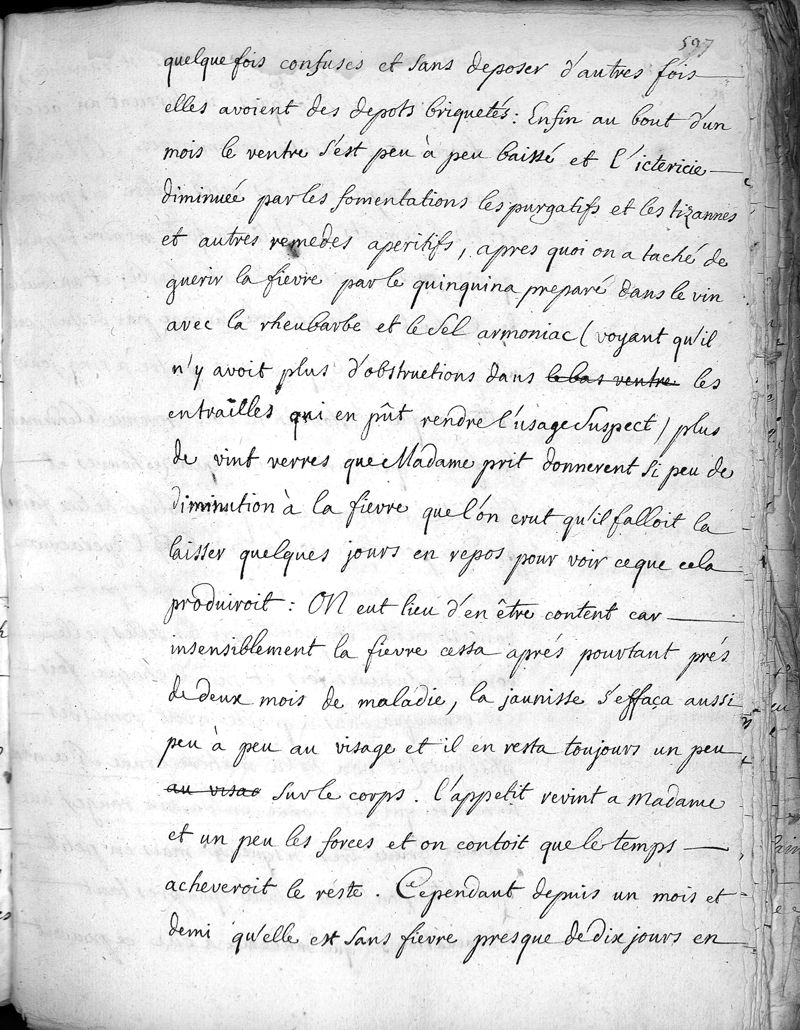 597
quelque fois confuses et sans deposer d'autres fois
elles avoient des depots briquetés : Enfin au bout d'un
mois le ventre s'est peu à peu baissé et l'ictericie
diminuée par les fomentations les purgatifs et les tizannes
et autres remedes aperitifs, apres quoi on a taché de
guerir la fievre par le quinquina preparé dans le vin
avec la rheubarbe et le sel armoniac (voyant qu'il
n'y avoit plus d'obstructions dans le bas ventre les
entrailles qui en pût rendre l'usage suspect) plus
de vint verres que Madame prit donnerent si peu de
diminution à la fievre que l'on crut qu'il falloit la
laisser quelques jours en repos pour voir ce que cela
produiroit : On eut lieu d'en être content car
insensiblement la fievre cessa aprés pourtant prés
de deux mois de maladie, la jaunisse s'effaça aussi
peu à peu au visage et il en resta toujours un peu
au visag sur le corps. l'appetit revint a Madame
et un peu les forces et on contoit que le temps
acheveroit le réste. Cependant depuis un mois et
demi qu'elle est sans fievre presque de dix jours en